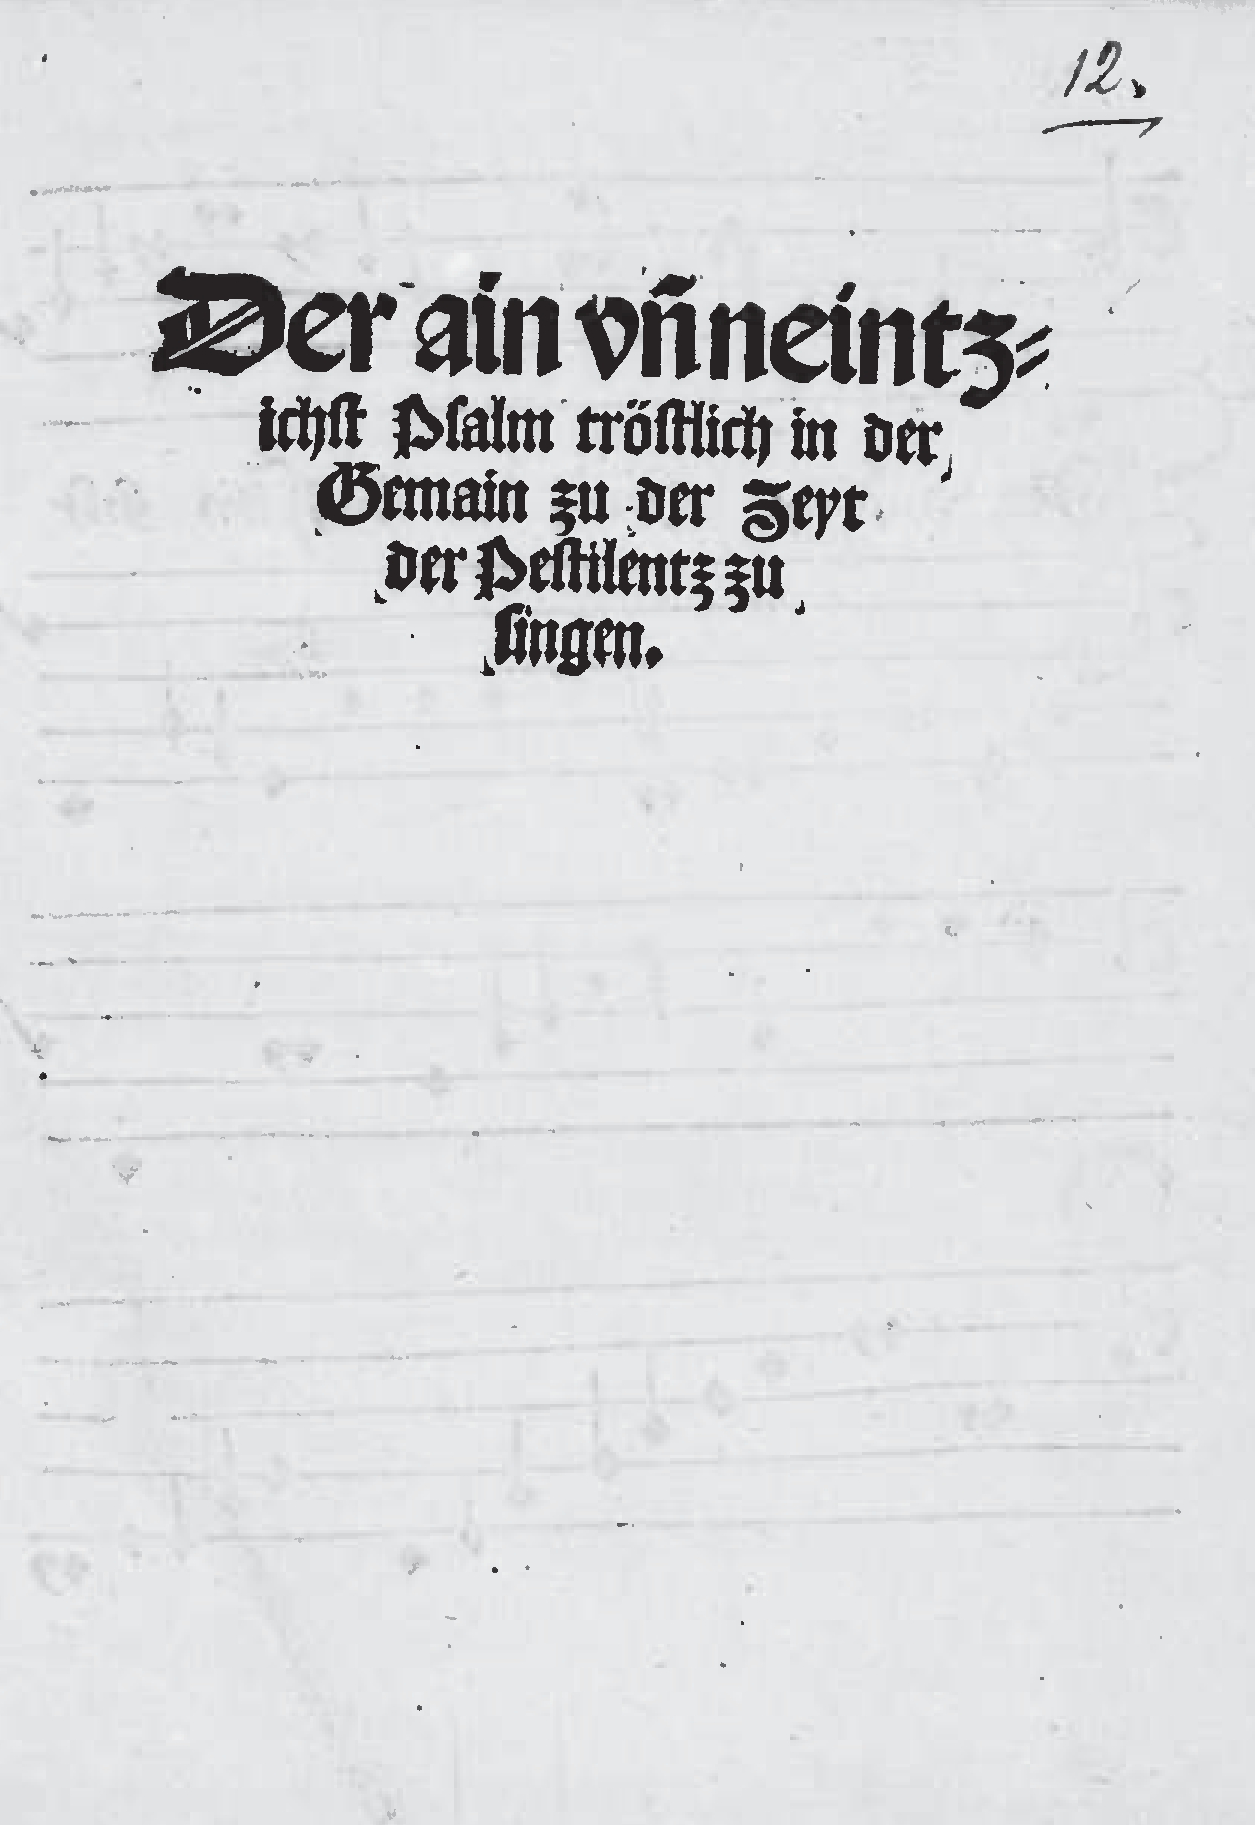 12.
Der ain vñ neintz⸗
ichſt Pſalm tröſtlich in der
Gemain zu der Zeyt
der Peſtilentz zu
ſingen.